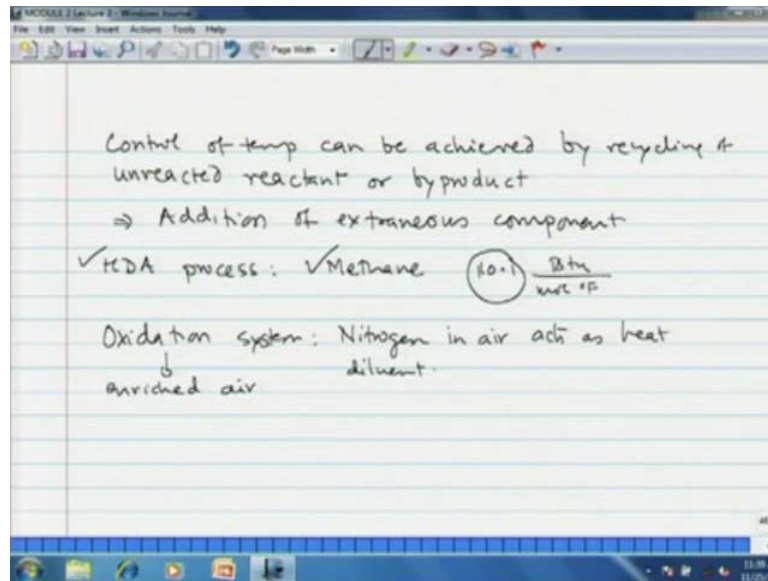 MODULE 2 Lecture 3 - Windows Journal
File Edit View Insert Actions Tools Help
Page Width
Control of temp can be achieved by recycling of
unreacted reactant or byproduct
⇒ Addition of extraneous component
✓HDA process: ✓Methane 10.1 Btu
mol °F
Oxidation system: Nitrogen in air act as heat
diluent.
enriched air